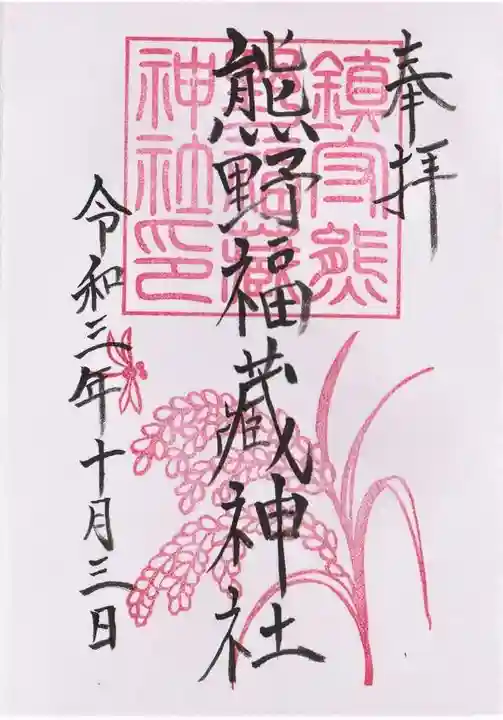 奉拝
熊野福藏神社
令和三年十月三日
鎮守熊
野福藏
神社印